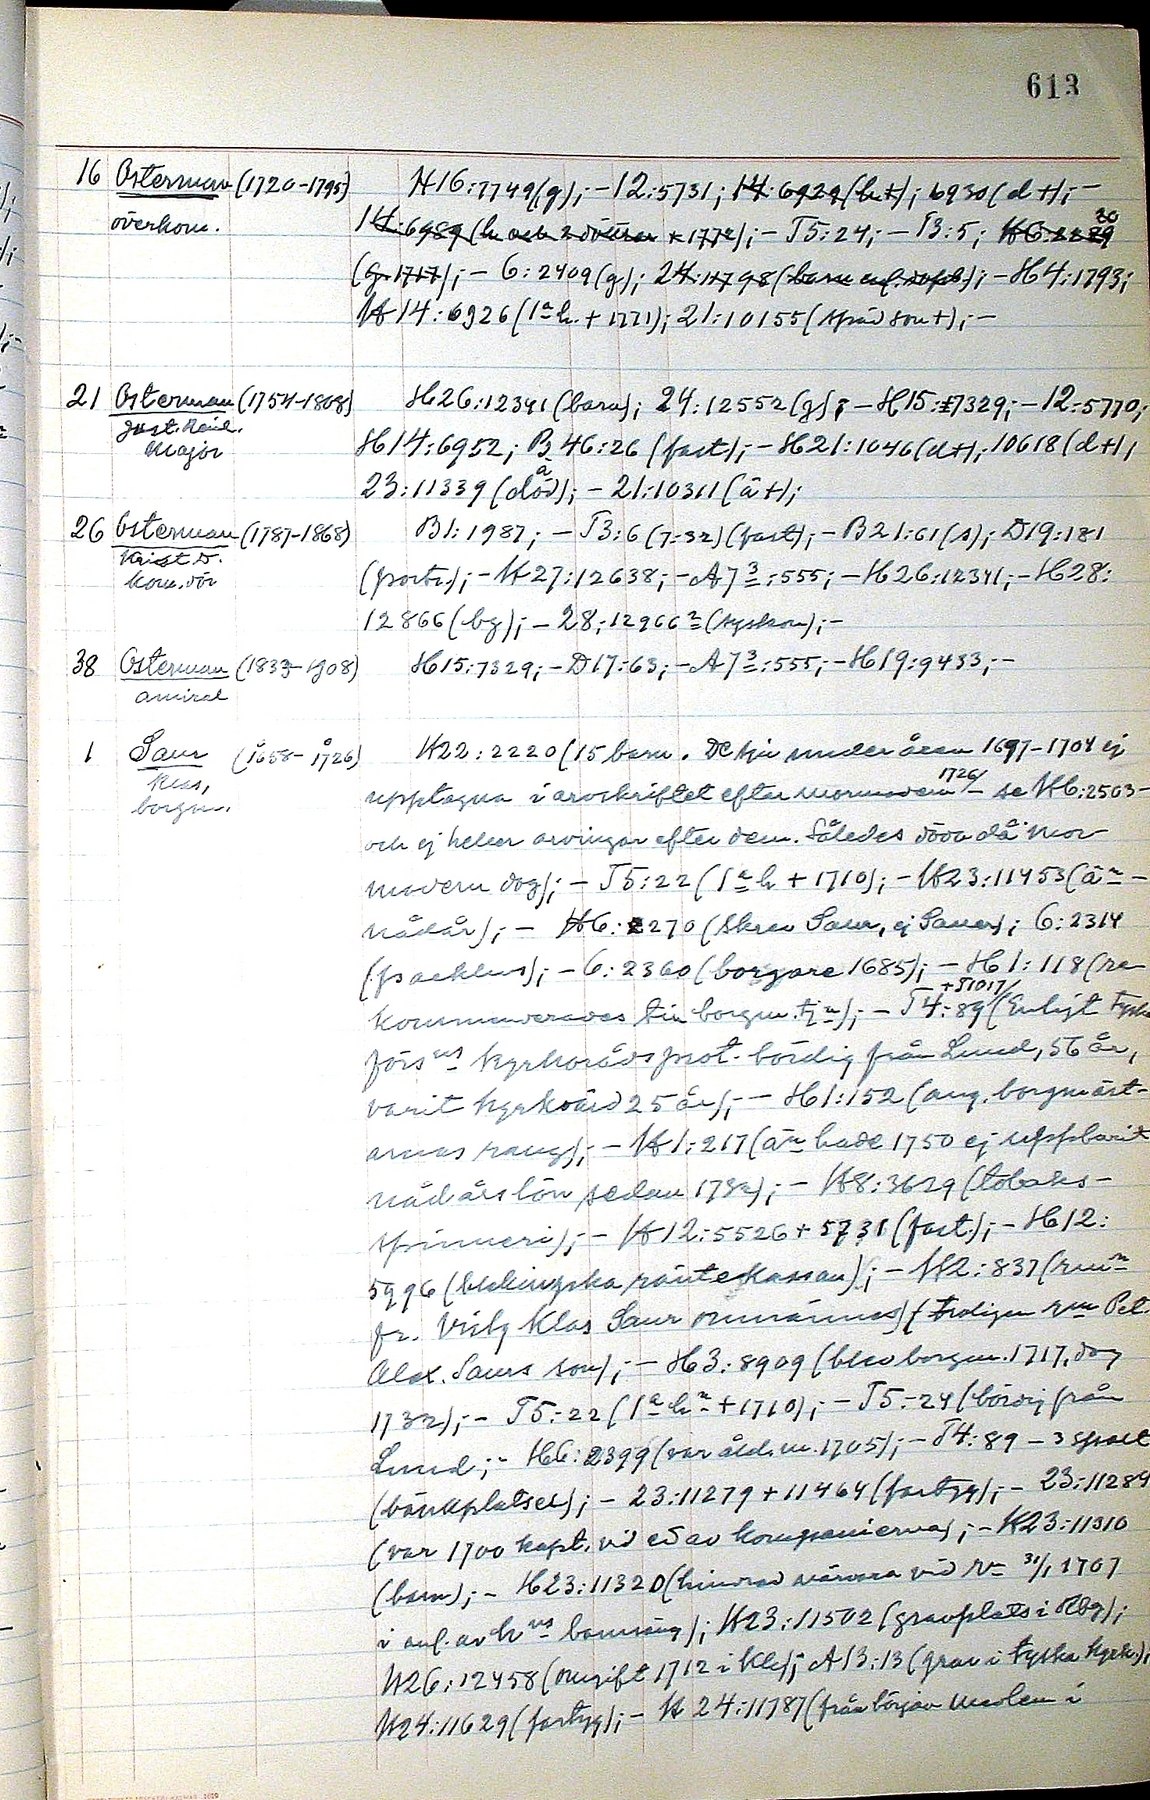 613
16 Osterman (1720-1795) H16:7749(g); - 12:5731; 14:6929(h+); 6930(d+); -
överkom. 14:6989(h och 2 döttrar +1772); - T5:24; - B:5; H6:2229 30
(g. 1717); - 6:2409(g); 24:11798(barn enl. dopb); - H4:1793;
H14:6926(1a h. + 1771); 21:10155(späd son +); -
21 Osterman (1754-1808) H26:12341(barn); 24:12552(g); - H15:7329; - 12:5770;
Just. Reinh. H14:6952; B46:26(fast); - H21:1046(d+); 10618(d+);
major 23:11339(död); - 21:10311(ä+);
26 Osterman (1787-1868) B1:1987; - T3:6(7:32)(fast); - B21:61(s); D19:181
Krist. D. (portr.); - H27:12638; - A7 3:555; - H26:12341; - H28:
kom.dör 12866(bg); - 28:12966 2(syskon); -
38 Osterman (1833-1908) H15:7329; - D17:63; - A7 3:555; - H19:9433; -
amiral
1 Saur (1658-1726) H22:2220(15 barn. De tju under åren 1697-1704 ej
Klas, upptagna i arvskriftet efter mormodern 1726/ - se H6:2503 -
borgm. och ej heller arvingar efter dem. Således döda då mor
modern dog); - T5:22(1a h + 1710); - H23:11453(än -
nådår); - H6:2270(skrev Saur, ej Sauer); 6:2314
- 6:2360(borgare 1685); - H1:118(re
kommenderades till borgm.tjn); - T4:89 +T1017/ (Enligt Tyska
förs:ns kyrkorådsprot. bördig från Lund, 56 år,
varit kyrkoråd 25 år); - H1:152(ang. borgmäst-
arnas rang); - H1:217(än hade 1750 ej uppburit
nådårslön sedan 1732); - H8:3629(tobaks-
spinneri); - H12:5526+5731(fast.); - H12:
5996( räntekassan); - H2:837(
fr. Visby Klas Saur omnämnes)(troligen Pet.
Alex. Saurs son); - H3:8909(blev borgm. 1717, dog
1732); - T5:22(1a hn + 1710); - T5:24(bördig från
Lund; - H6:2399(var åld.m. 1705); - T4:89 - 3 spalt
(bänkplatser); - 23:11279+11464(fartyg); - 23:11284
(var 1700 kapt. vid ed av kompanierna); - H23:11310
(barn); - H23:11320(hindrad närvara vid 31/1 1707
i anl. av hns barnsäng); H23:11502(gravplats i Rbg);
H26:12458(omgift 1712 i Kl); A13:13(grav i Tyska kyrk.);
H24:11629(fartyg); - H24:11787(från början medlem i